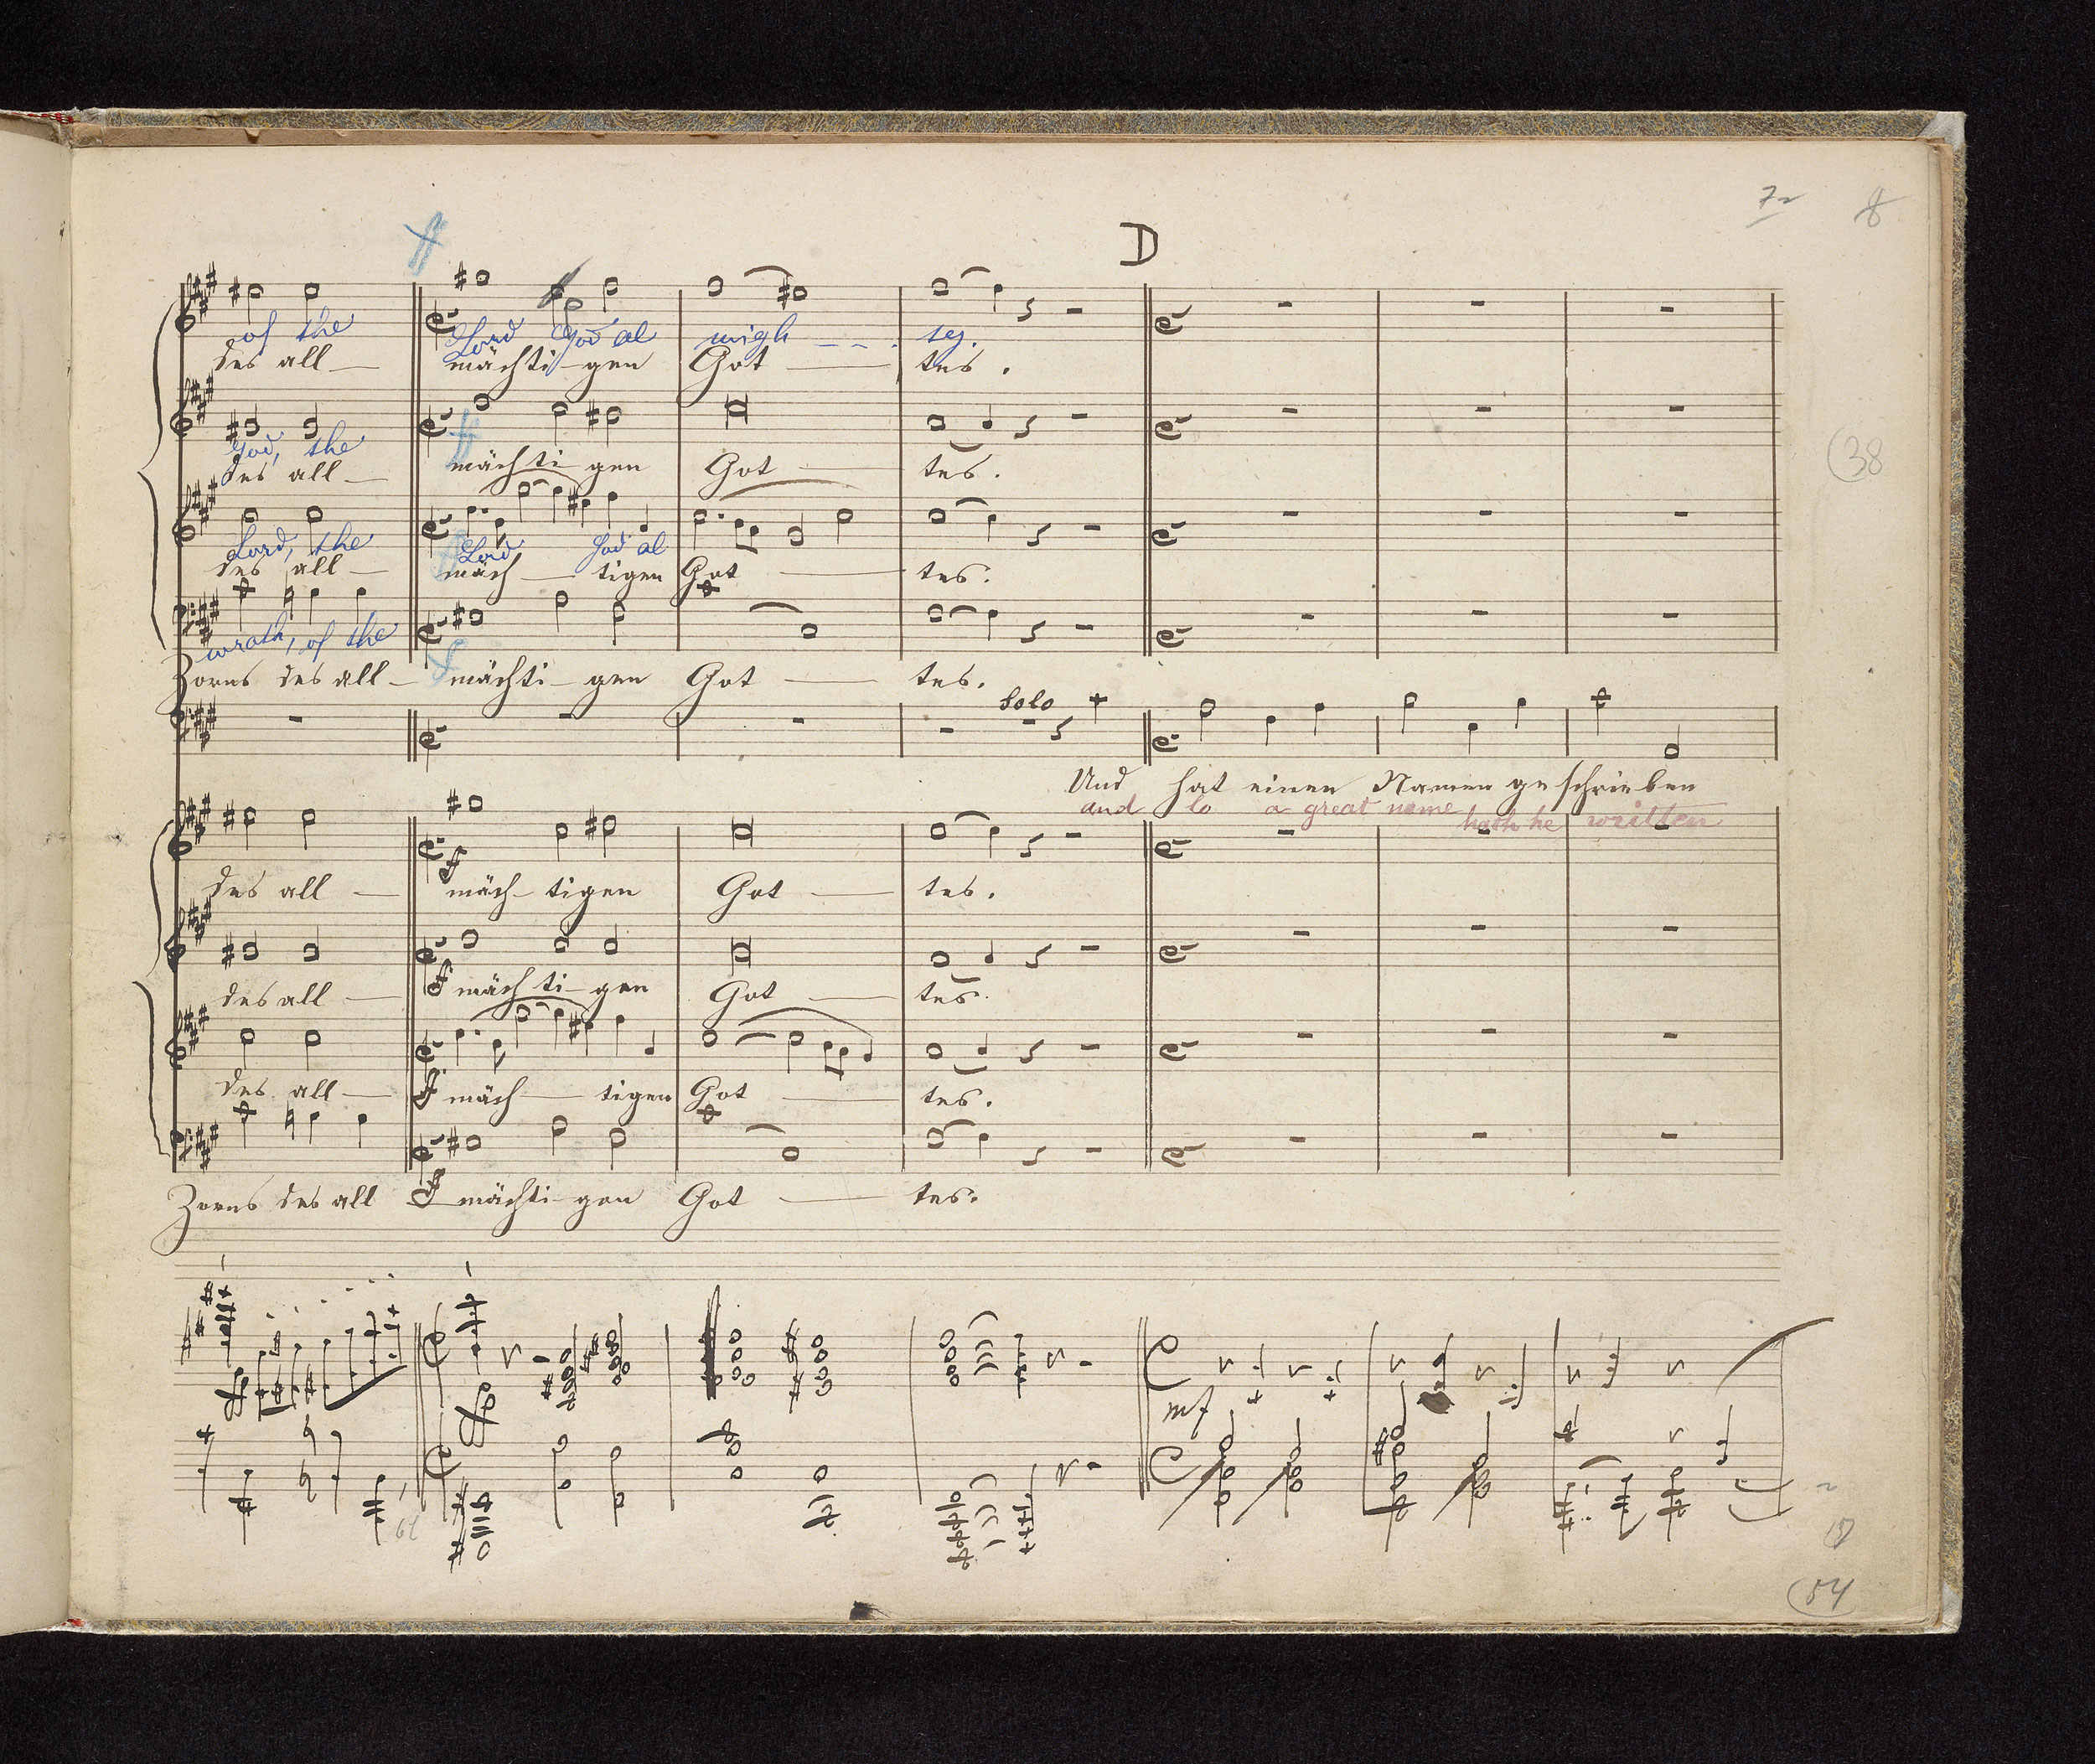 72 8
ff
D
of the Lord God al migh - - - ty.
des all — mächti-gen Got — tes.
(38)
God, the ff
des all — mächti-gen Got — tes.
Lord, the Lord God al
des all — mäch — tigen Got — tes.
wrath, of the
Zorns des all — mächti-gen Got — tes.
Solo
Und hat einen Namen geschrieben
and lo a great name hath he written
f
des all — mäch-tigen Got — tes.
des all — f mächti-gen Got — tes.
des all — f mäch — tigen Got — tes.
Zorns des all f mächti-gen Got — tes.
mf
(54)